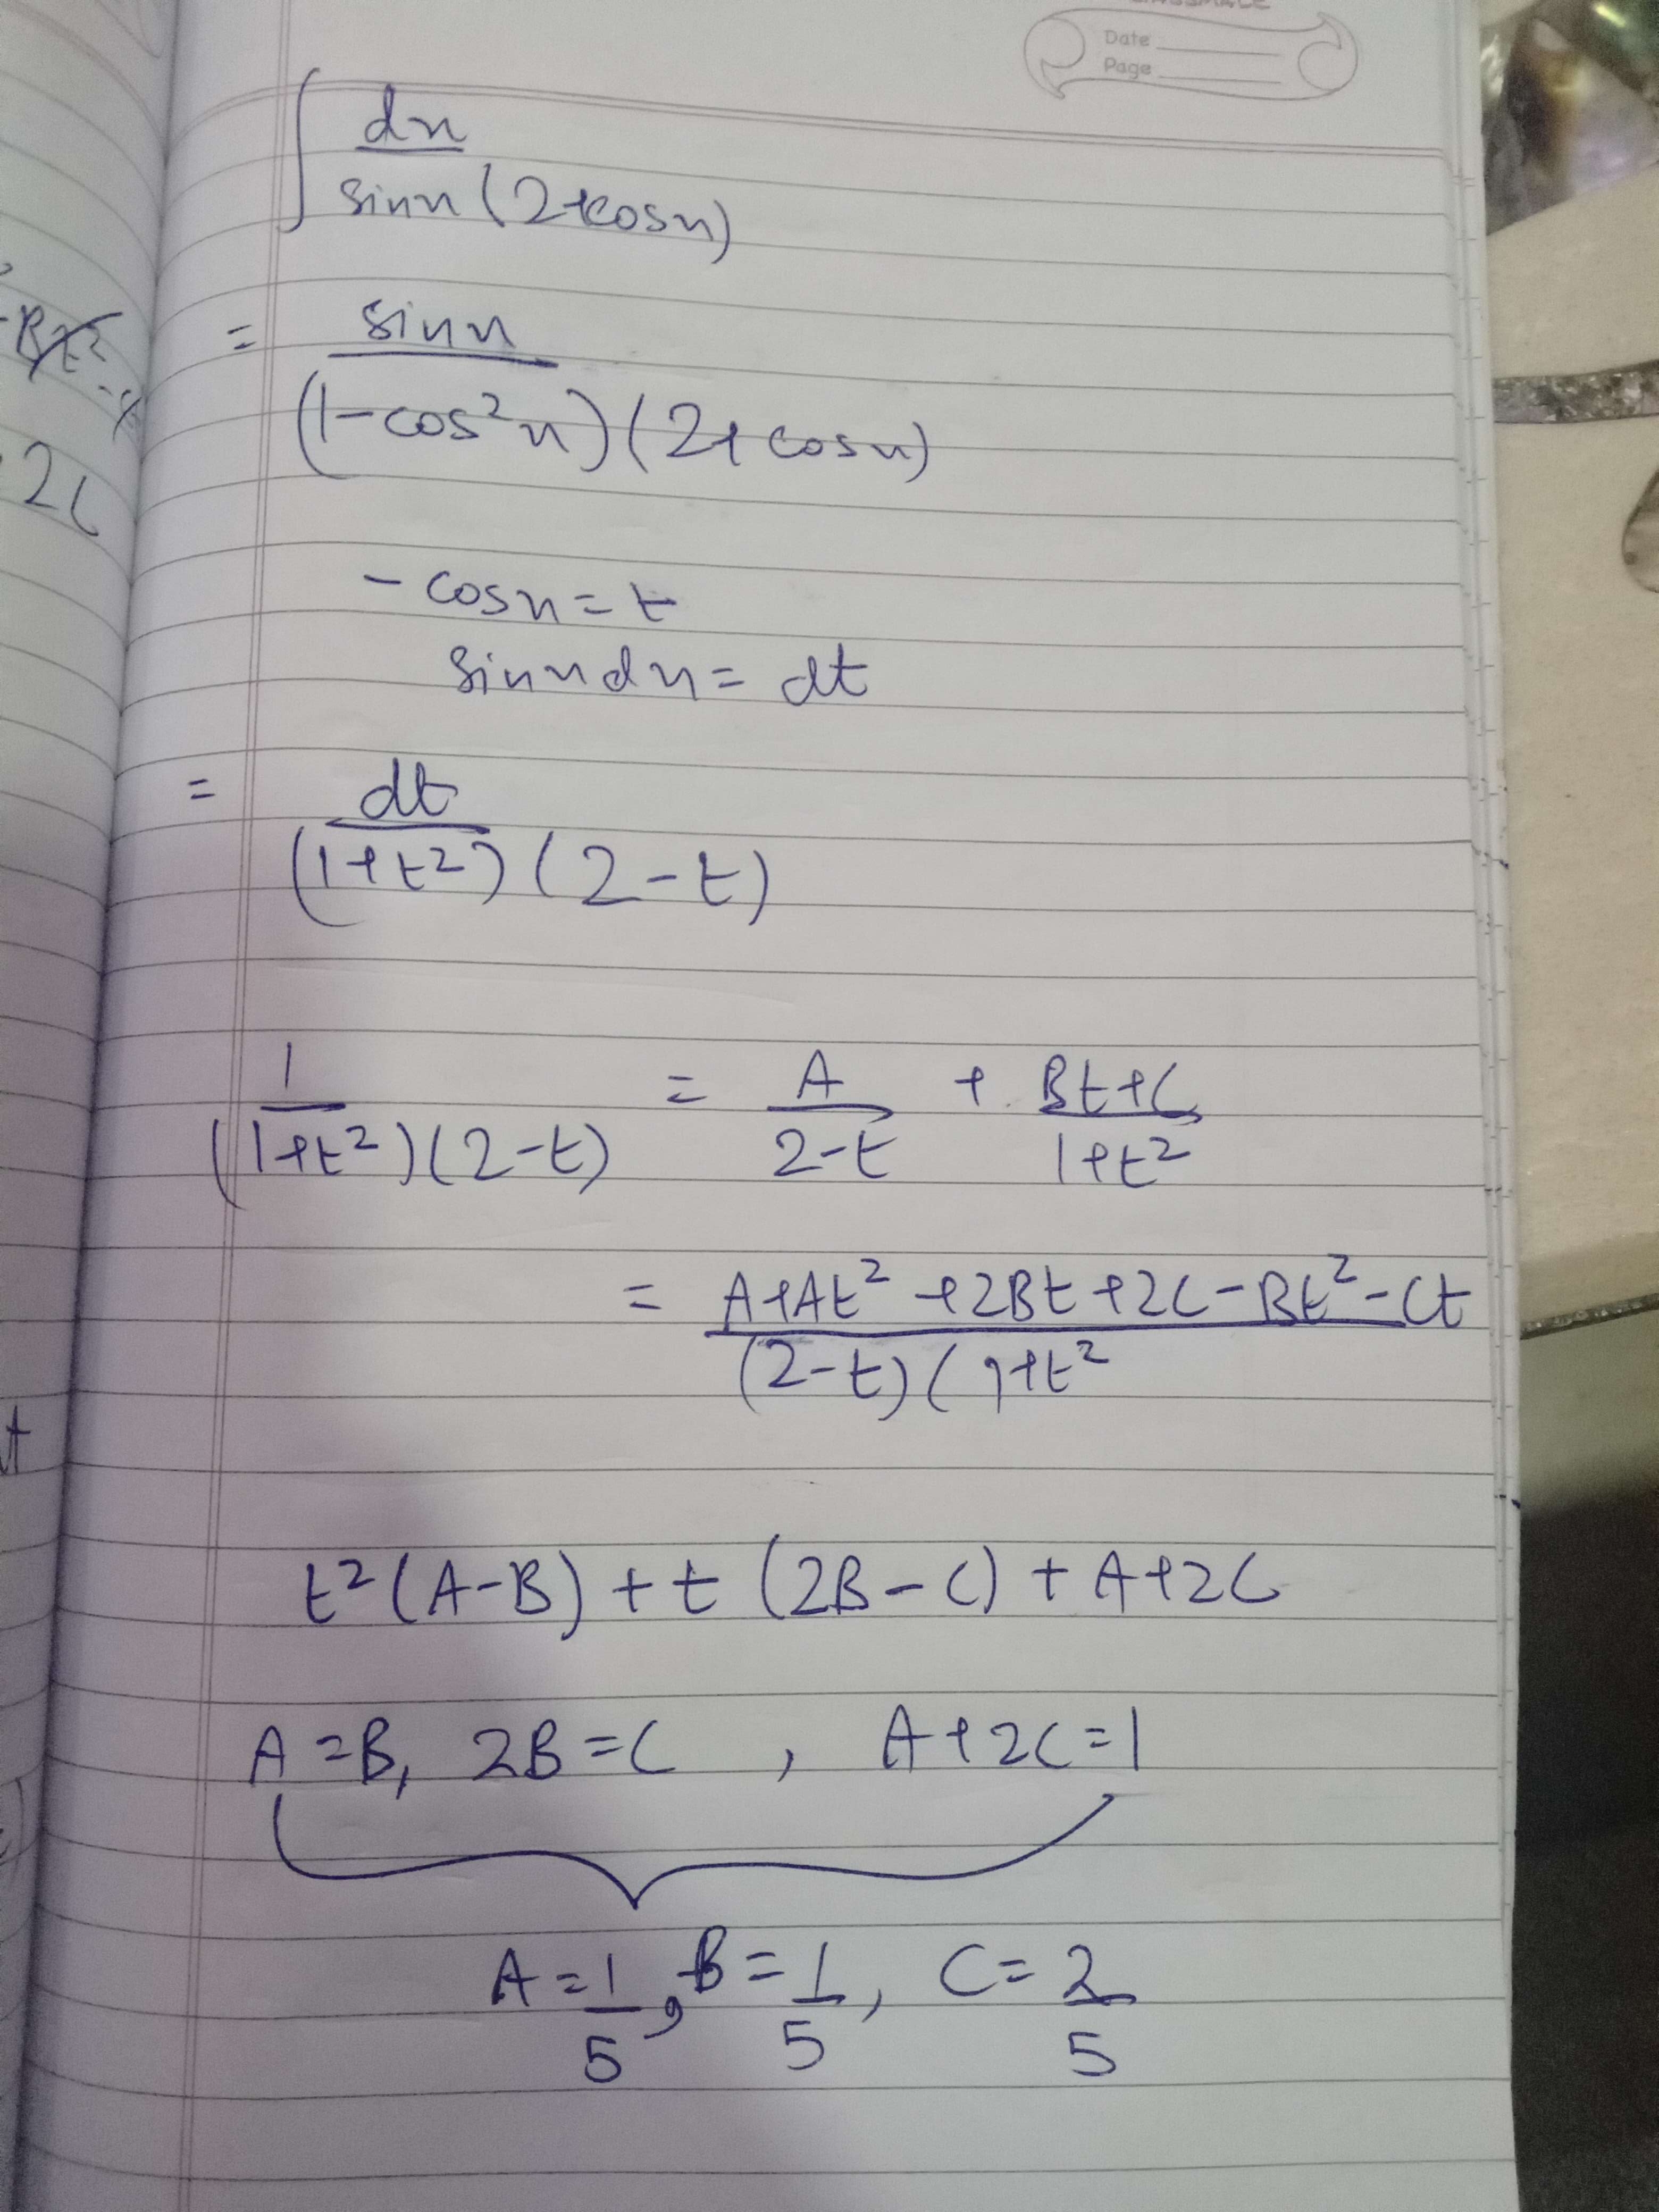 Date
Page
∫ dx / sinx (2+cosx)
= sinx / (1-cos²x)(2+cosx)
- cosx = t
sinx dx = dt
= dt / (1+t²)(2-t)
1 / (1+t²)(2-t) = A / 2-t + Bt+C / 1+t²
= A+At²+2Bt+2C-Bt²-Ct / (2-t)(1+t²
t²(A-B) + t (2B-C) + A+2C
A=B, 2B=C , A+2C=1
A=1/5, B=1/5, C=2/5
2C